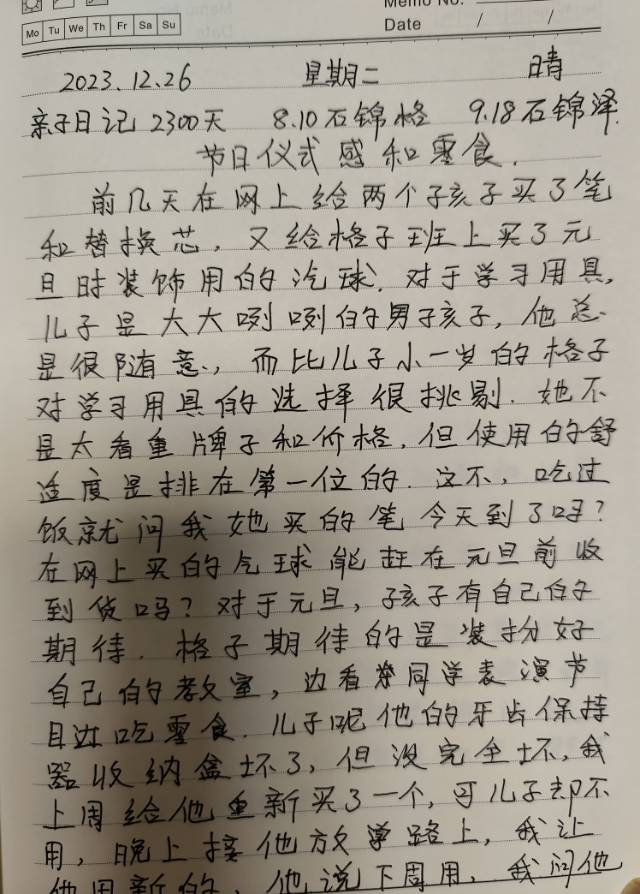 Memo No.
Mo Tu We Th Fr Sa Su
Date / /
2023.12.26 星期二 晴
亲子日记2300天 8.10石锦格 9.18石锦泽
节日仪式感和零食.
前几天在网上给两个孩子买了笔
和替换芯,又给格子班上买了元
旦时装饰用的汽球.对于学习用具,
儿子是大大咧咧的男孩子,他总
是很随意,而比儿子小一岁的格子
对学习用具的选择很挑剔.她不
是太看重牌子和价格,但使用的舒
适度是排在第一位的.这不,吃过
饭就问我她买的笔今天到了吗?
在网上买的气球能赶在元旦前收
到货吗?对于元旦,孩子有自己的
期待.格子期待的是装扮好
自己的教室,边看着同学表演节
目边吃零食.儿子呢他的牙齿保持
器收纳盒坏了,但没完全坏,我
上周给他重新买了一个,可儿子却不
用,晚上接他放学路上,我让
他用新的,他说下周用,我问他